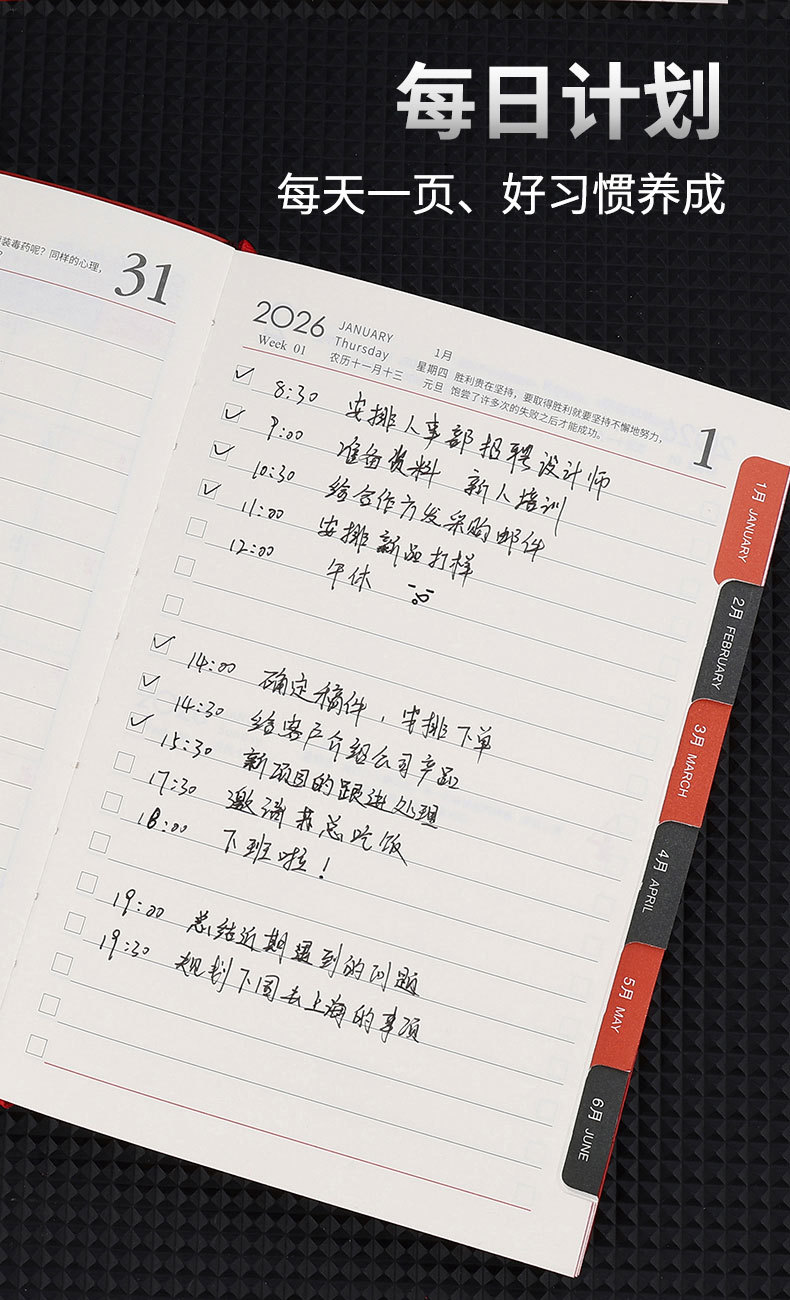 每日计划
每天一页、好习惯养成
装毒药呢？同样的心理，
31
2026 JANUARY 1月
Thursday 星期四 胜利贵在坚持，要取得胜利就要坚持不懈地努力，
Week 01 农历十一月十三 元旦 饱尝了许多次的失败之后才能成功。
1
8:30 安排人事部招聘设计师
9:00 准备资料 新人培训
10:30 给合作方发采购邮件
11:00 安排新品打样
12:00 午休
14:00 确定稿件，安排下单
14:30 给客户介绍公司产品
15:30 新项目的跟进处理
17:30 邀请 总吃饭
18:00 下班啦！
19:00 总结近期遇到的问题
19:30 规划下周去上海的事项
1月 JANUARY
2月 FEBRUARY
3月 MARCH
4月 APRIL
5月 MAY
6月 JUNE